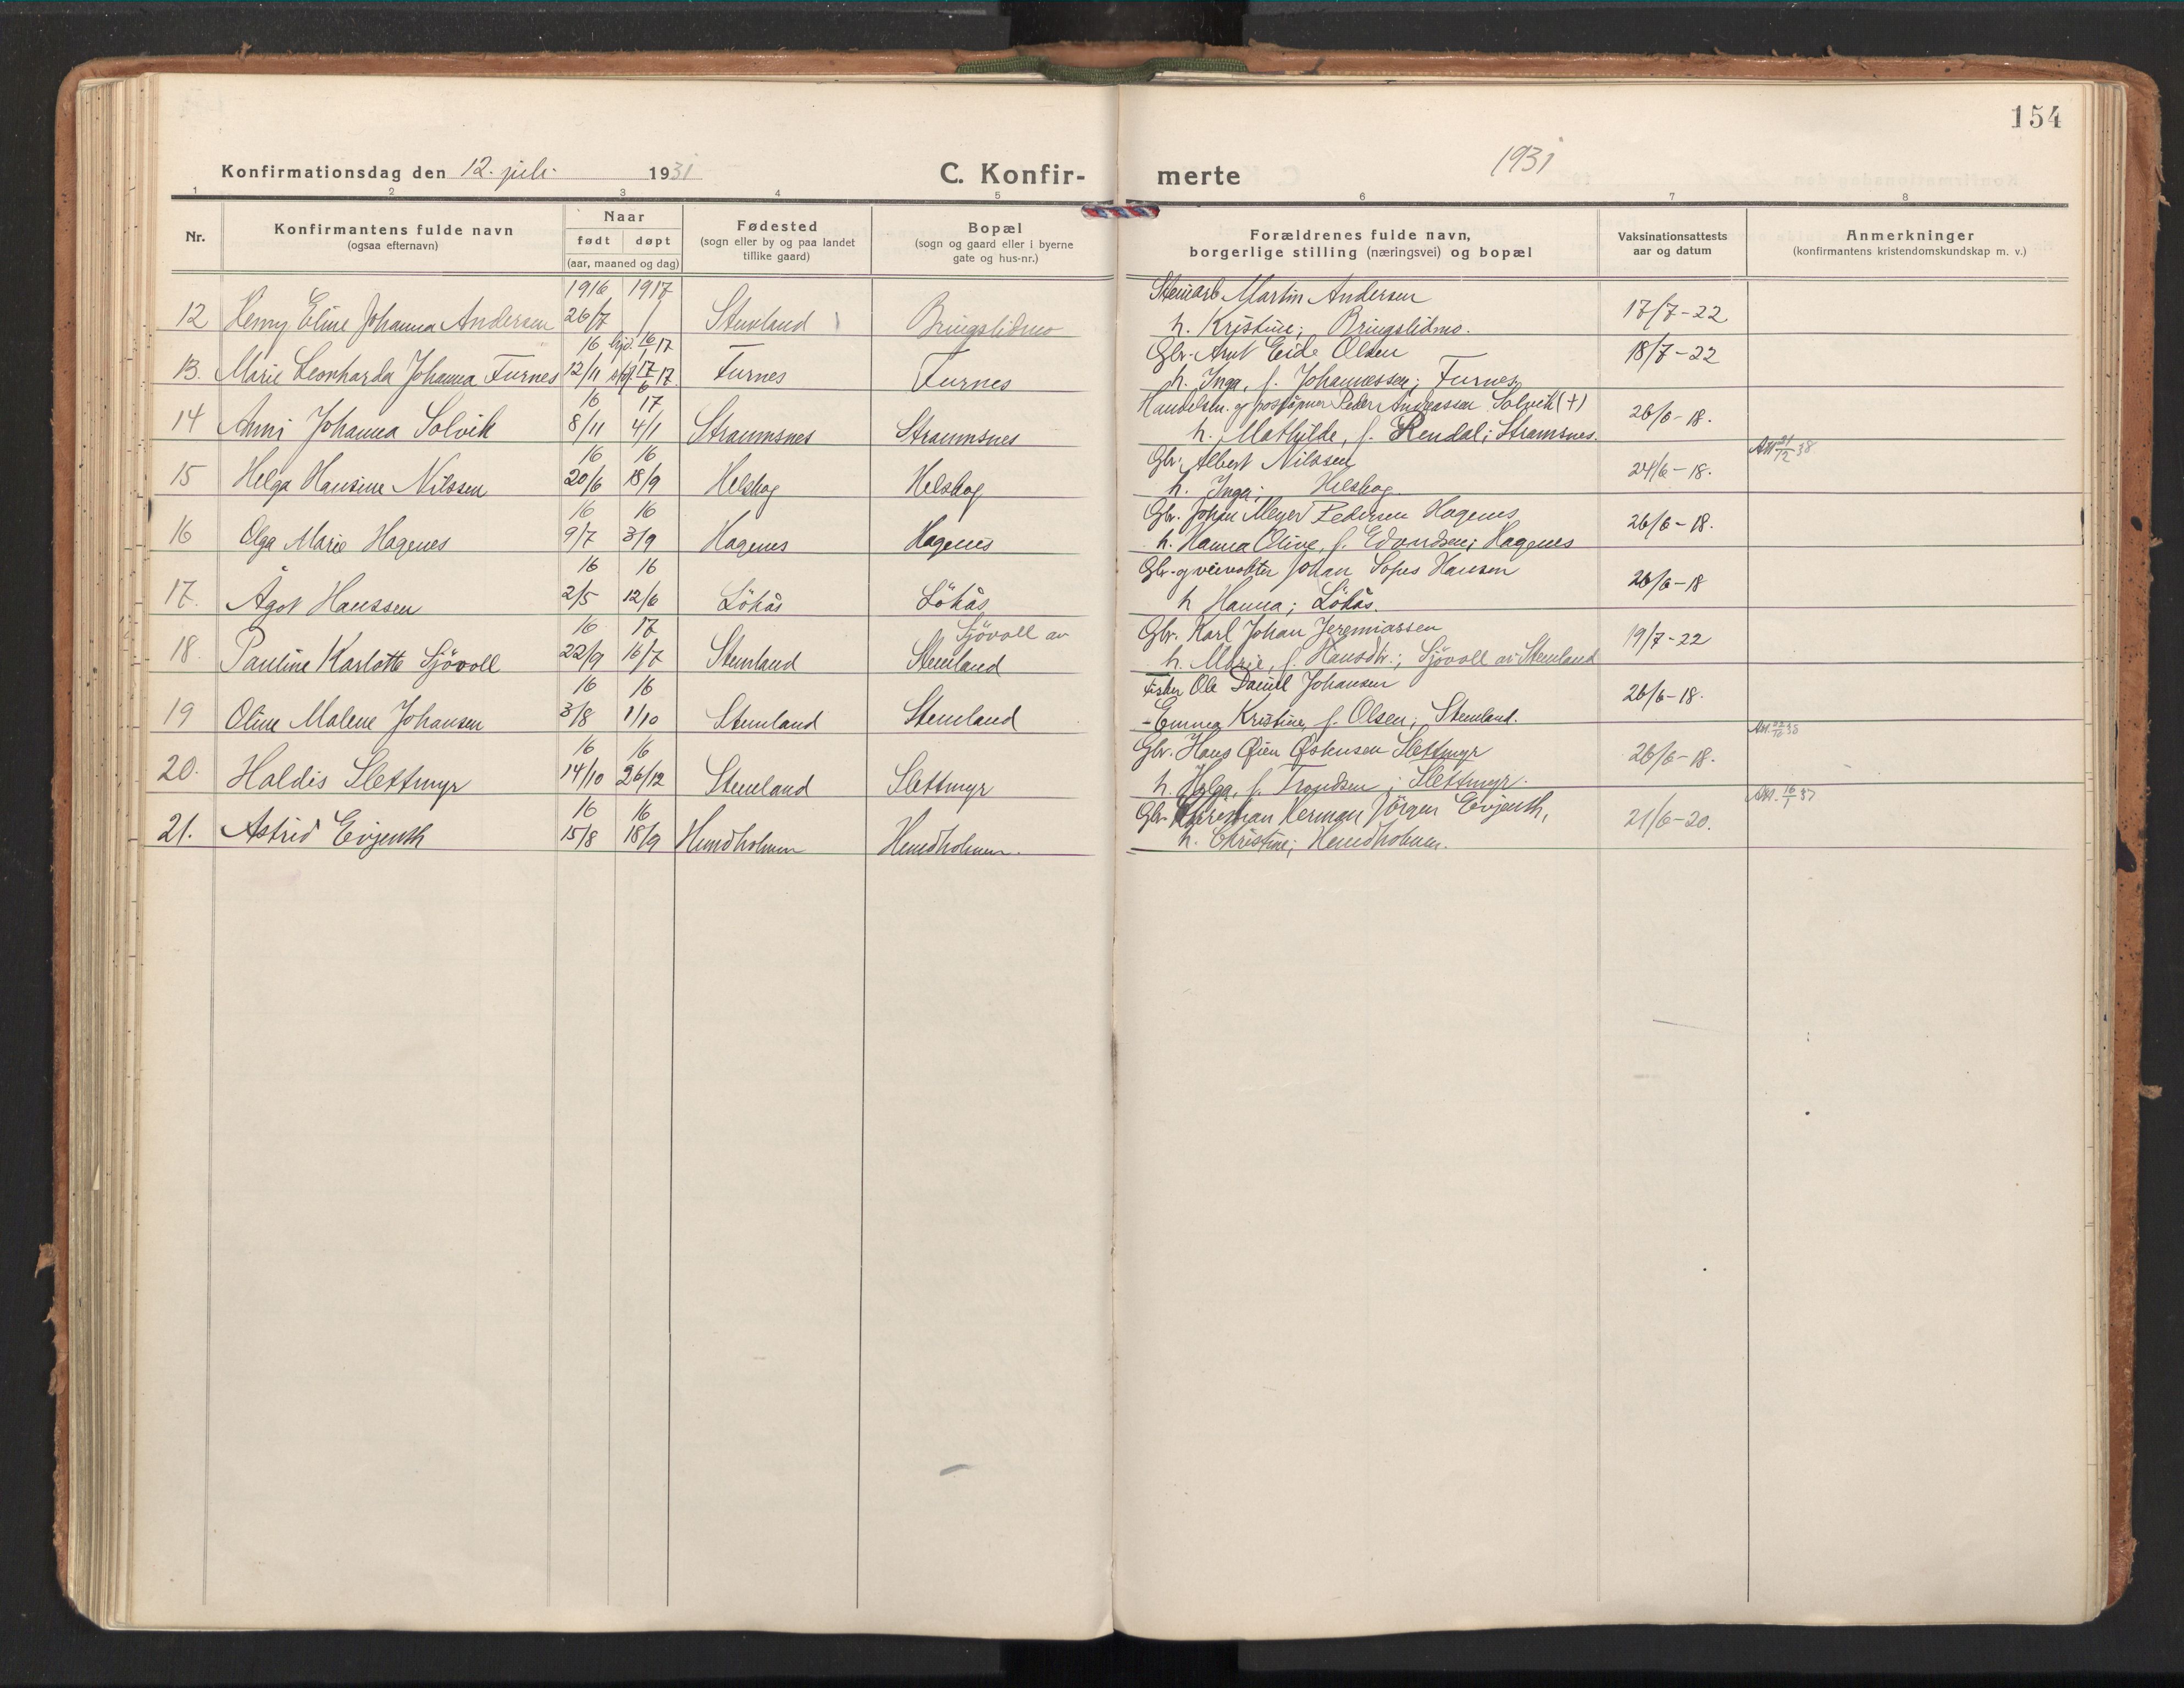 154
Konfirmationsdag den 12. juli 1931 C. Konfir- merte 1931
1 2 3 4 5 6 7 8
Nr. Konfirmantens fulde navn (ogsaa efternavn) Naar født døpt (aar, maaned og dag) Fødested (sogn eller by og paa landet tillike gaard) Bopæl (sogn og gaard eller i byerne gate og hus-nr.) Forældrenes fulde navn, borgerlige stilling (næringsvei) og bopæl Vaksinationsattests aar og datum Anmerkninger (konfirmantens kristendomskundskap m. v.)
1916 1917 Stenarb Martin Andersen
12 Henny Eline Johanna Andersen 26/7 / Stemland Bringslidmo h. Kristine; Bringslidmo. 17/7-22
16 hjd. 16/1 17 Gbr. Arnt Eide Olsen
13. Marie Leonharda Johanna Furnes 12/11 stf. 17/6 17 Furnes Furnes h. Inga, f. Johannessen; Furnes 18/7-22
16 17 Handelsm. og poståpner Peder Andreassen Solvik (+)
14 Anni Johanna Solvik 8/11 4/1 Straumsnes Straumsnes h. Mathilde, f. Rendal; Stramsnes. 26/6-18.
16 16 Gbr. Albert Nilssen
15 Helga Hansine Nilssen 20/6 18/9 Helskog Helskog h. Inga; Helskog. 24/6-18. Att 21/12 38
16 16 Gbr. Johan Meyer Pedersen Hagenes
16 Olga Marie Hagenes 9/7 3/9 Hagenes Hagenes h. Hanna Oline, f. Edvardsen; Hagenes 26/6-18.
16 16 Gbr. og veivokter Johan Sofus Hansen
17. Ågot Hanssen 2/5 12/6 Lökås Lökås h Hanna; Lökås. 26/6-18
16 17 Sjövoll av Gbr. Karl Johan Jeremiassen
18. Pauline Karlotte Sjövoll 22/9 16/7 Stemland Stemland h. Marie, f. Hansdtr.; Sjövoll av Stemland 19/7-22
16 16 Fisker Ole Daniel Johansen
19 Oline Malene Johansen 3/8 1/10 Stemland Stemland - Emma Kristine, f. Olsen; Stemland. 26/6-18.
16 16 Gbr. Hans Øien Østensen Slettmyr
20. Haldis Slettmyr 14/10 26/12 Stemland Slettmyr h. Helga, f. Trondsen; Slettmyr. 26/6-18.
16 16 Gbr. Christian Herman Jörgen Evjenth,
21. Astrid Evjenth 15/8 18/9 Hundholmen Hundholmen. h. Christine; Hundholmen. 21/6-20. Att. 16/1 37